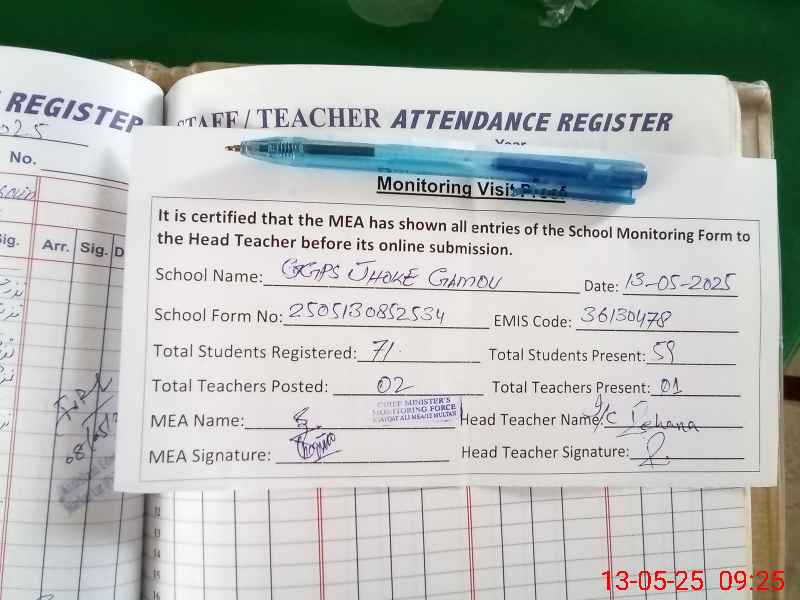 REGISTER
2025
No.
Sig. Arr. Sig. D
08/05/2
STAFF / TEACHER ATTENDANCE REGISTER
Year
Monitoring Visit Proof
It is certified that the MEA has shown all entries of the School Monitoring Form to
the Head Teacher before its online submission.
School Name: GGPS JHOKE GAMOU Date: 13-05-2025
School Form No: 2505130852534 EMIS Code: 36130478
Total Students Registered: 71. Total Students Present: 59
Total Teachers Posted: 02 Total Teachers Present: 01
CHIEF MINISTER'S
MONITORING FORCE
LIAQAT ALI MEA/12 MULTAN
MEA Name: Head Teacher Name: I/C Rehana
MEA Signature: Head Teacher Signature:
12
13
14
15
16
13-05-25 09:25